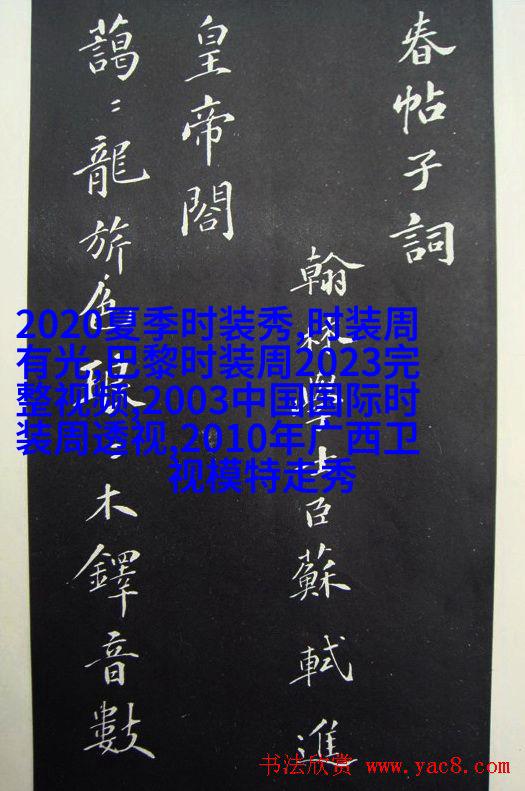 春帖子詞
翰林學士臣蘇軾進
皇帝閤
藹〻龍旂色琅〻木鐸音數
2020夏季时装秀,时装周
有光,巴黎时装周2023完
整视频,2003中国国际时
装周透视,2010年广西卫
视模特走秀
书法欣赏 www.yac8.com